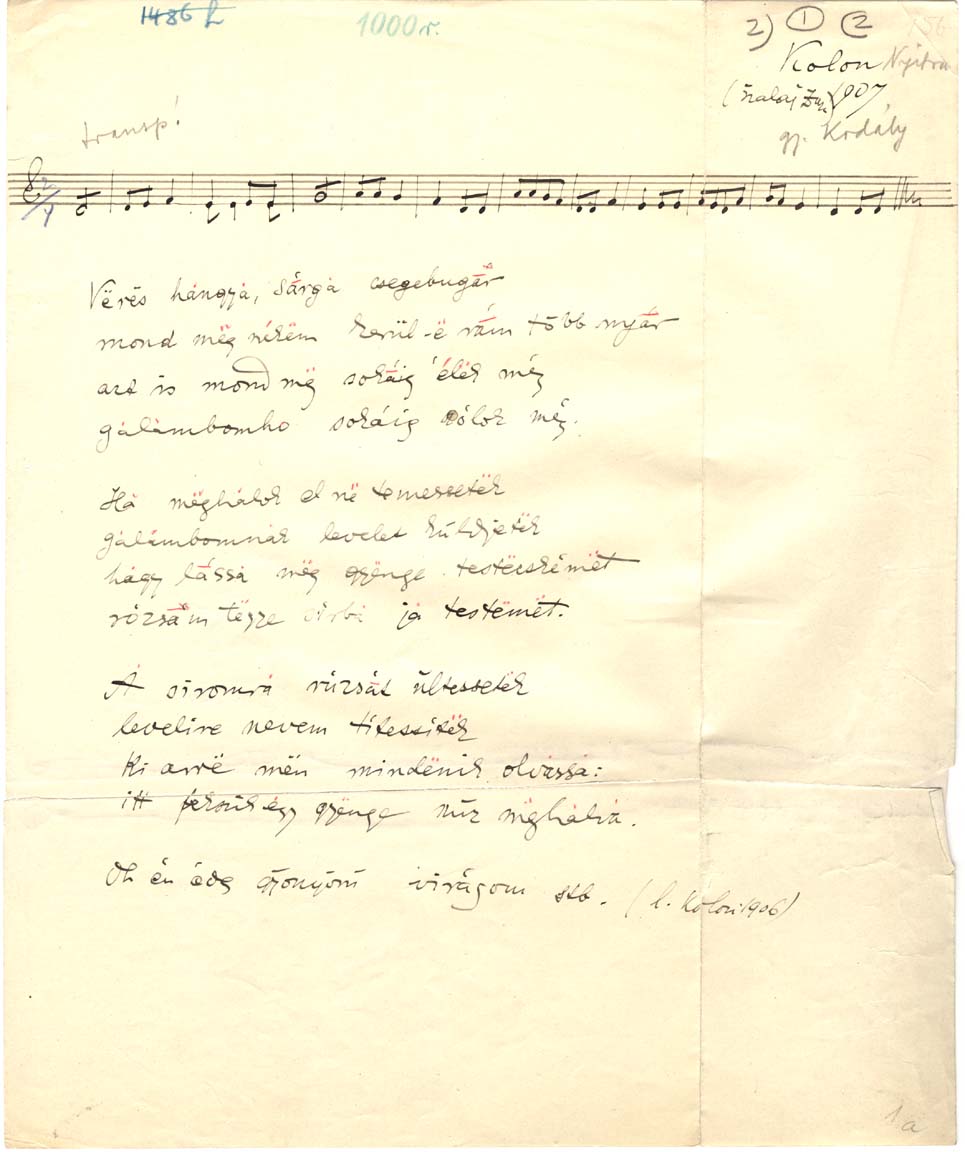 1486 L
1000 r.
2) 1 2 156
Kolon Nyitra
(Szalaj Zs.) 1907
gy. Kodály
transp!
2/4
Vërës hángyá, Sárgá csegebugár
mond mëg nékëm kerül-ë rám több nyár
azt is mond mëg sokáig élëk még
gálámbomho sokáig sólok még.
Há mëghálok el në temessetëk
gálámbomnák levelet küldjetëk
hágy lássá mëg gyënge testëcskémët
rózsám tëgye sirbá já testëmët.
Á siromrá rúzsát ültessetëk
levelire nevem títessítëk
Ki arrë mën mindënik olvássá:
itt fekszik ëgy gyënge mëghálvá.
Oh én édes gyönyörű virágom stb. (l. Kolon 1906)
1a